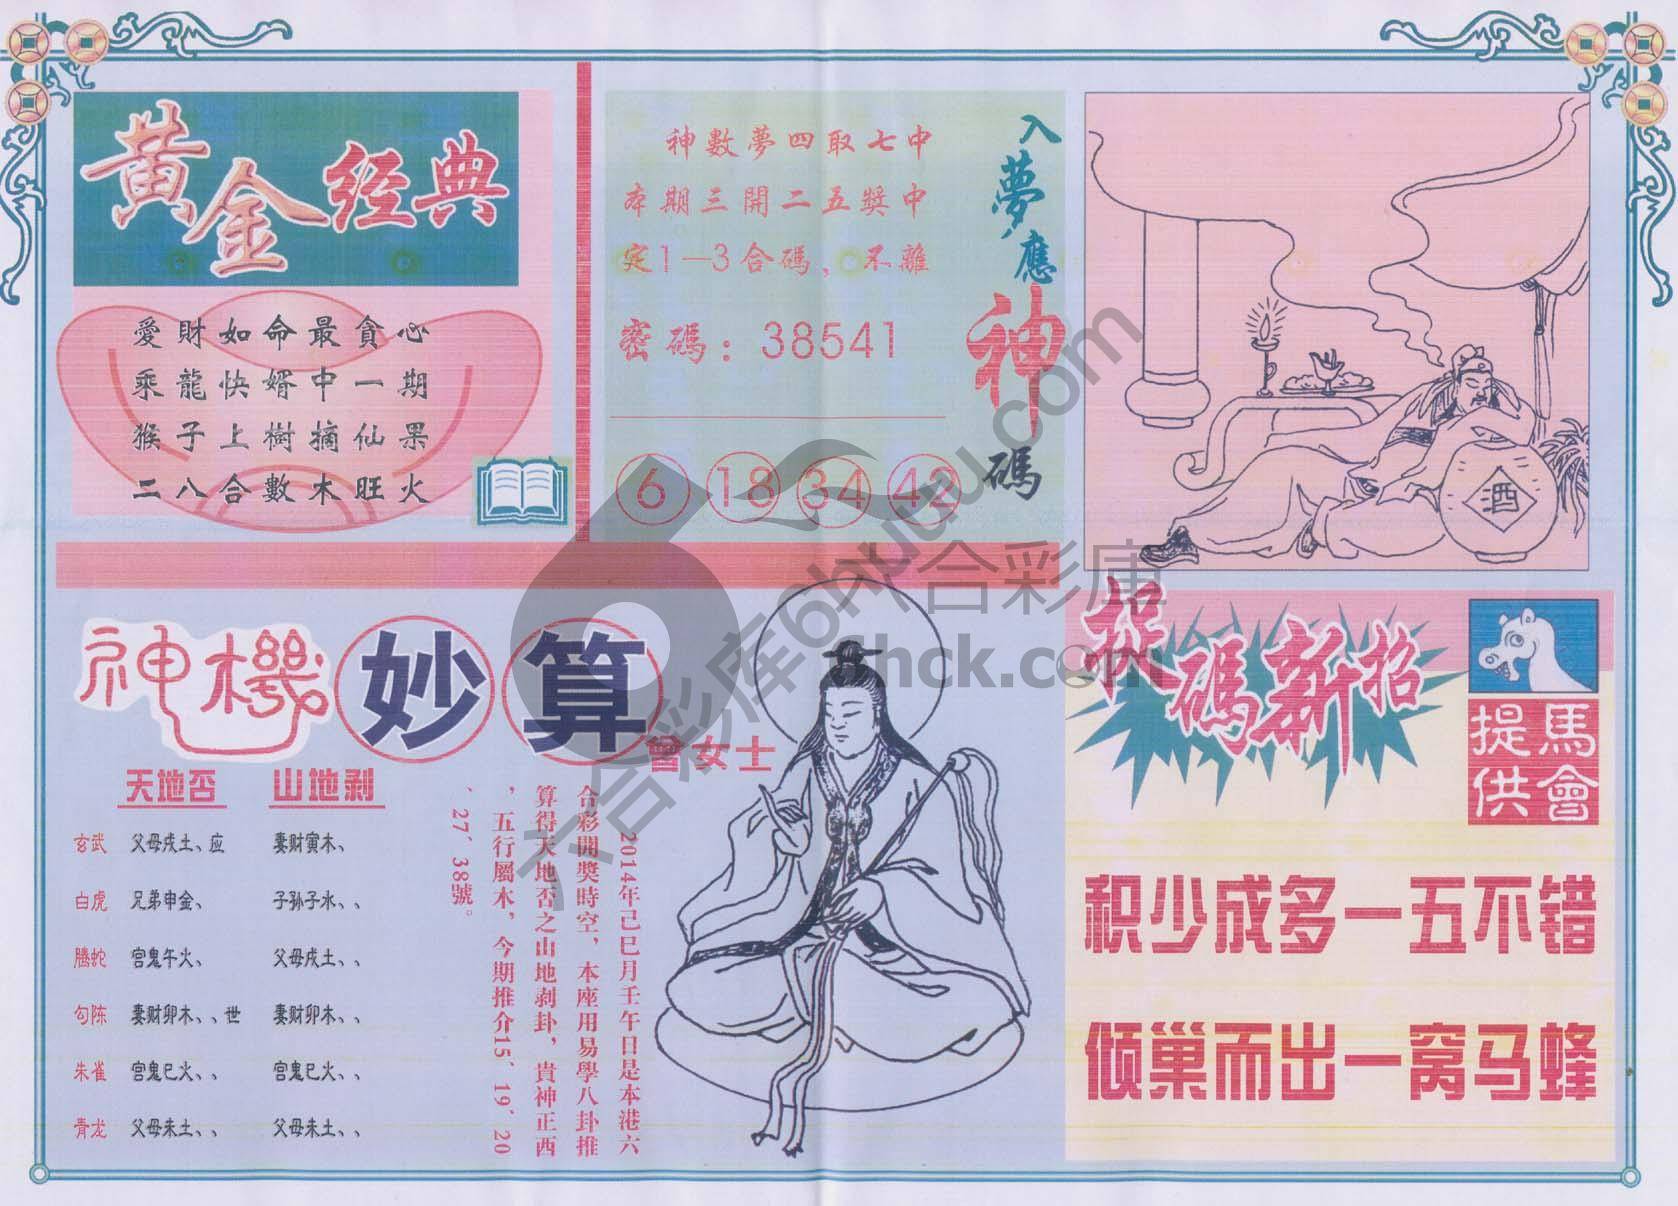 黄金经典
愛財如命最貪心
乘龍快婿中一期
猴子上樹摘仙果
二八合數木旺火
神數夢四取七中
本期三開二五獎中
定1—3合碼，不離
密碼：38541
6 18 34 42
入夢應神碼
酒
神機妙算
曾女士
天地否 山地剥
玄武 父母戌土、应 妻财寅木、
白虎 兄弟申金、 子孙子水、、
腾蛇 官鬼午火、 父母戌土、、
勾陈 妻财卯木、、世 妻财卯木、、
朱雀 官鬼巳火、、 官鬼巳火、、
青龙 父母未土、、 父母未土、、
2014年己巳月壬午日是本港六
合彩開獎時空，本座用易學八卦推
算得天地否之山地剥卦，貴神正西
，五行屬木，今期推介15、19、20
、27、38號。
捉碼新招
馬會
提供
积少成多一五不错
倾巢而出一窝马蜂
六合彩库6huuu.com
六合彩庫
6hck.com